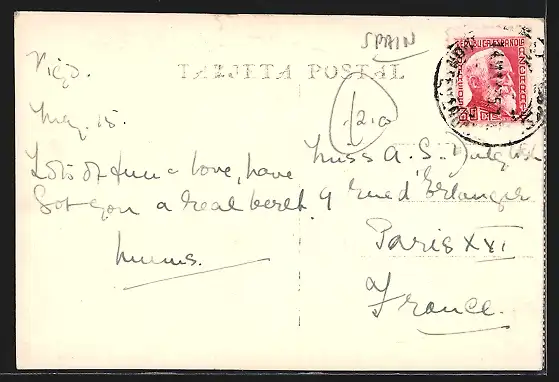 SPAIN
TARJETA POSTAL
REPUBLICA ESPAÑOLA
Vigo.
May. 15.
Lots of fun & love, have
Got you a real beret.
Mums.
1/2.0
Miss A. S.
9 Rue d'Erlanger
Paris XVI
France.